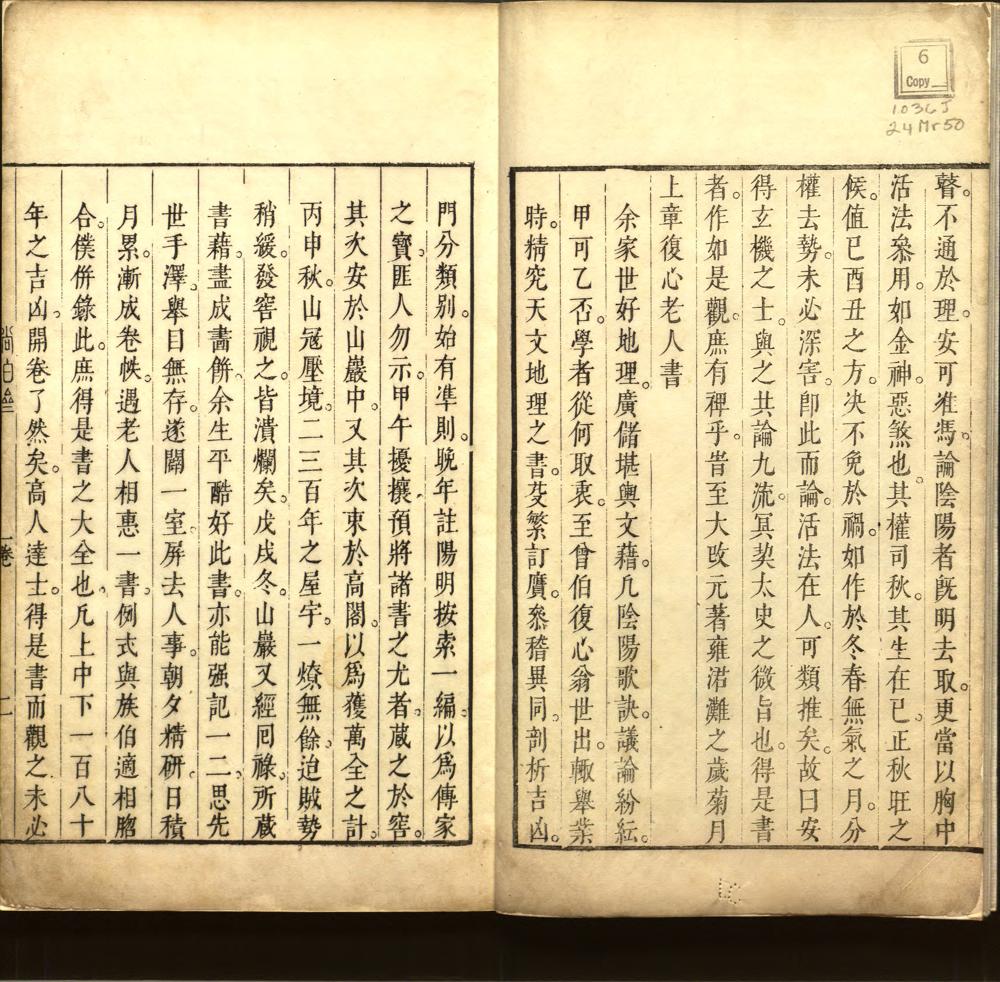 6
Copy
1036J
24Mr50
瞽。不通於理。安可准馮。論陰陽者旣明去取。更當以胸中
活法叅用。如金神。惡煞也。其權司秋。其生在巳。正秋旺之
候。值巳酉丑之方。决不免於禍。如作於冬春無氣之月。分
權去勢。未必深害。卽此而論。活法在人。可類推矣。故曰安
得玄機之士。與之共論九流。冥契太史之微旨也。得是書
者。作如是觀。庶有裨乎。旹至大攺元著雍涒灘之歲菊月
上章復心老人書
余家世好地理。廣儲堪輿文藉。凢陰陽歌訣。議論紛紜。
甲可乙否。學者從何取衷。至曾伯復心翁世出。輙舉業
時。精究天文地理之書。芟繁訂贗。叅稽異同。剖析吉凶。
門分類别。始有準則。晚年註陽明按索一編。以爲傳家
之寳。匪人勿示。甲午擾攘。預將諸書之尤者。蔵之於窖。
其次安於山巖中。又其次束於高閣。以爲蓰萬全之計。
丙申秋。山冦壓境。二三百年之屋宇。一燎無餘。迨賊勢
稍緩。發窖視之。皆潰爛矣。戊戌冬。山巖又經回祿。所蔵
書藉。盡成畵餅。余生平酷好此書。亦能强記一二。思先
世手澤。舉目無存。遂闢一室。屏去人事。朝夕精研。日積
月累。漸成卷帙。遇老人相惠一書。例式與族伯適相脗
合。僕併錄此。庶得是書之大全也。凢上中下一百八十
年之吉凶。開卷了然矣。高人達士。得是書而觀之。未必
一卷
二